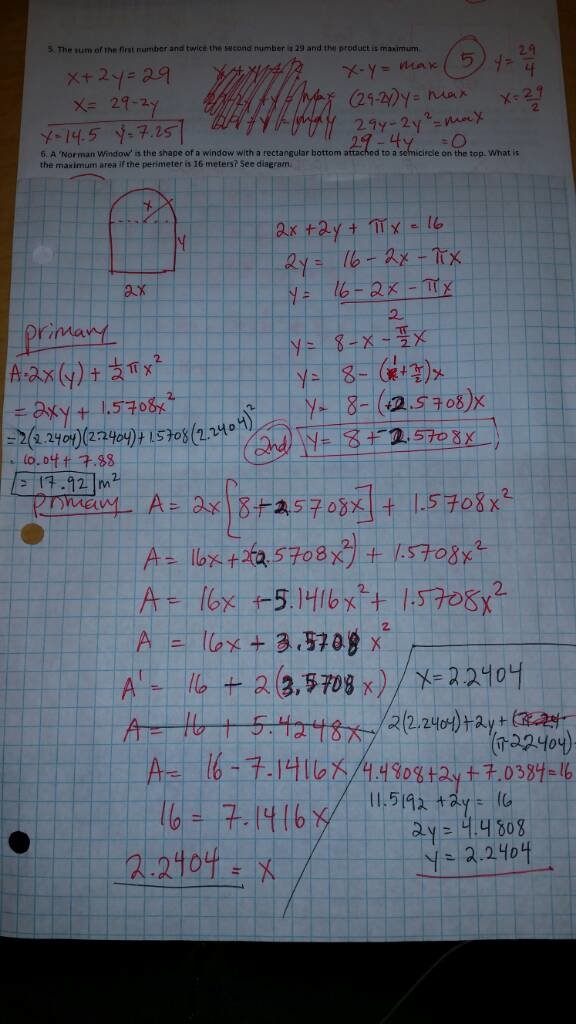 5. The sum of the first number and twice the second number is 29 and the product is maximum.
x + 2y = 29
x = 29 - 2y
x = 14.5 y = 7.25
x - y = max
(29-2y)y = max
29y - 2y² = max
29 - 4y = 0
5
y = 29/4
x = 29/2
6. A 'Norman Window' is the shape of a window with a rectangular bottom attached to a semicircle on the top. What is
the maximum area if the perimeter is 16 meters? See diagram.
x
y
2x
2x + 2y + πx = 16
2y = 16 - 2x - πx
y = (16 - 2x - πx)/2
y = 8 - x - π/2 x
y = 8 - (1 + π/2)x
y = 8 - (2.5708)x
2nd y = 8 + -2.5708x
primary
A = 2x(y) + 1/2 πx²
= 2xy + 1.5708x²
= 2(2.2404)(2.2404) + 1.5708(2.2404)²
= 10.04 + 7.88
= 17.92 m²
primary A = 2x[8 + -2.5708x] + 1.5708x²
A = 16x + 2(-2.5708x²) + 1.5708x²
A = 16x + -5.1416x² + 1.5708x²
A = 16x + 3.5708x²
A' = 16 + 2(3.5708x)
A = 16 + 5.4248x
A = 16 - 7.1416x
16 = 7.1416x
2.2404 = x
x = 2.2404
2(2.2404) + 2y +
(π·2.2404)
4.4808 + 2y + 7.0384 = 16
11.5192 + 2y = 16
2y = 4.4808
y = 2.2404